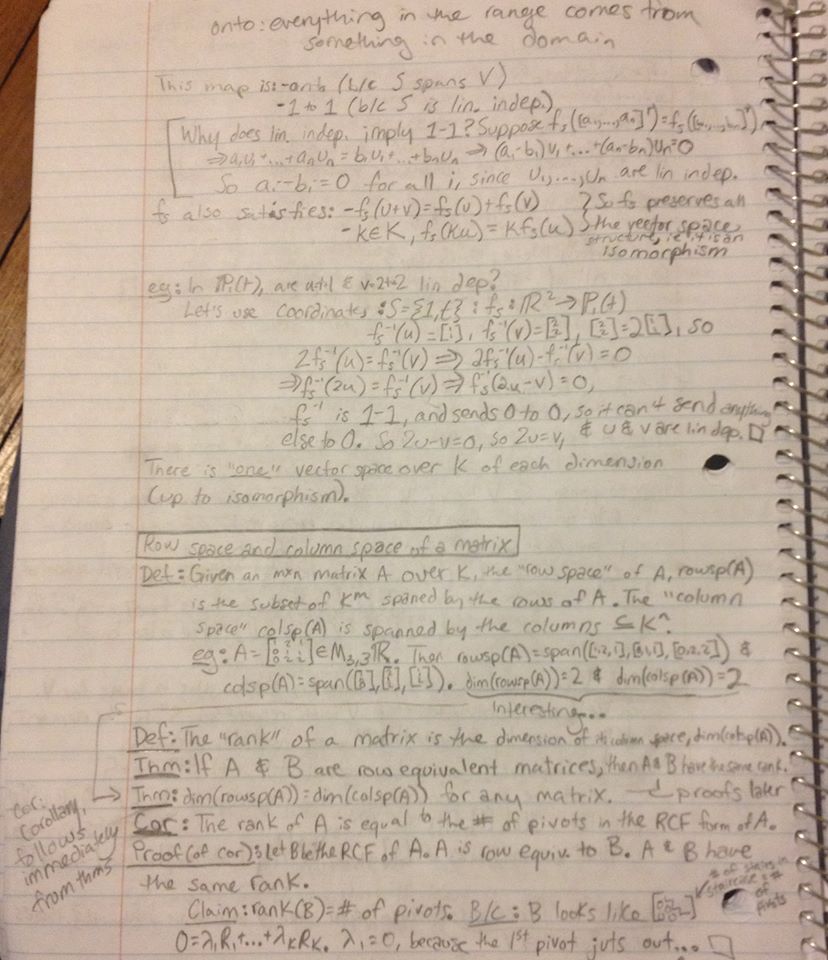 onto: everything in the range comes from
something in the domain
This map is: -onto (b/c S spans V)
-1 to 1 (b/c S is lin. indep.)
Why does lin. indep. imply 1-1? Suppose fs([a1,...,an]ᵀ)=fs([b1,...,bn]ᵀ)
⇒a1u1+...+anun=b1u1+...+bnun ⇒ (a1-b1)u1+...+(an-bn)un=0
So ai-bi=0 for all i, since u1,...,un are lin indep.
fs also satisfies: -fs(u+v)=fs(u)+fs(v) } So fs preserves all
-k∈K, fs(ku)=kfs(u) } the vector space
structure, ie it is an
isomorphism
eg: In P1(t), are u=t+1 & v=2t+2 lin dep?
Let's use coordinates: S={1,t}: fs: R²→P1(t)
fs⁻¹(u)=[1 1], fs⁻¹(v)=[2 2], [2 2]=2[1 1], so
2fs⁻¹(u)=fs⁻¹(v) ⇒ 2fs⁻¹(u)-fs⁻¹(v)=0
⇒fs⁻¹(2u)=fs⁻¹(v)⇒fs⁻¹(2u-v)=0,
fs⁻¹ is 1-1, and sends 0 to 0, so it can't send anything
else to 0. So 2u-v=0, so 2u=v, & u & v are lin dep. □
There is "one" vector space over K of each dimension
(up to isomorphism).
Row space and column space of a matrix
Def: Given an mxn matrix A over K, the "row space" of A, rowsp(A)
is the subset of Kᵐ spaned by the rows of A. The "column
space" colsp(A) is spanned by the columns ⊆Kⁿ.
eg: A= ∈M3,3R. Then rowsp(A)=span([1,2,1],[0,1,1],[0,2,2]) &
colsp(A)=span( ). dim(rowsp(A))=2 & dim(colsp(A))=2
Interesting...
Def: The "rank" of a matrix is the dimension of its column space, dim(colsp(A)).
Thm: If A & B are row equivalent matrices, then A & B have the same rank.
Thm: dim(rowsp(A))=dim(colsp(A)) for any matrix. proofs later
Cor: The rank of A is equal to the # of pivots in the RCF form of A.
Proof (of cor): Let B be the RCF of A. A is row equiv. to B. A & B have
the same rank.
Claim: rank(B)=# of pivots. B/c: B looks like
0=λ1R1+...+λKRK. λ1=0, because the 1st pivot juts out... □
cor:
Corollary,
follows
immediately
from thms
# of stairs in
staircase = #
of
pivots